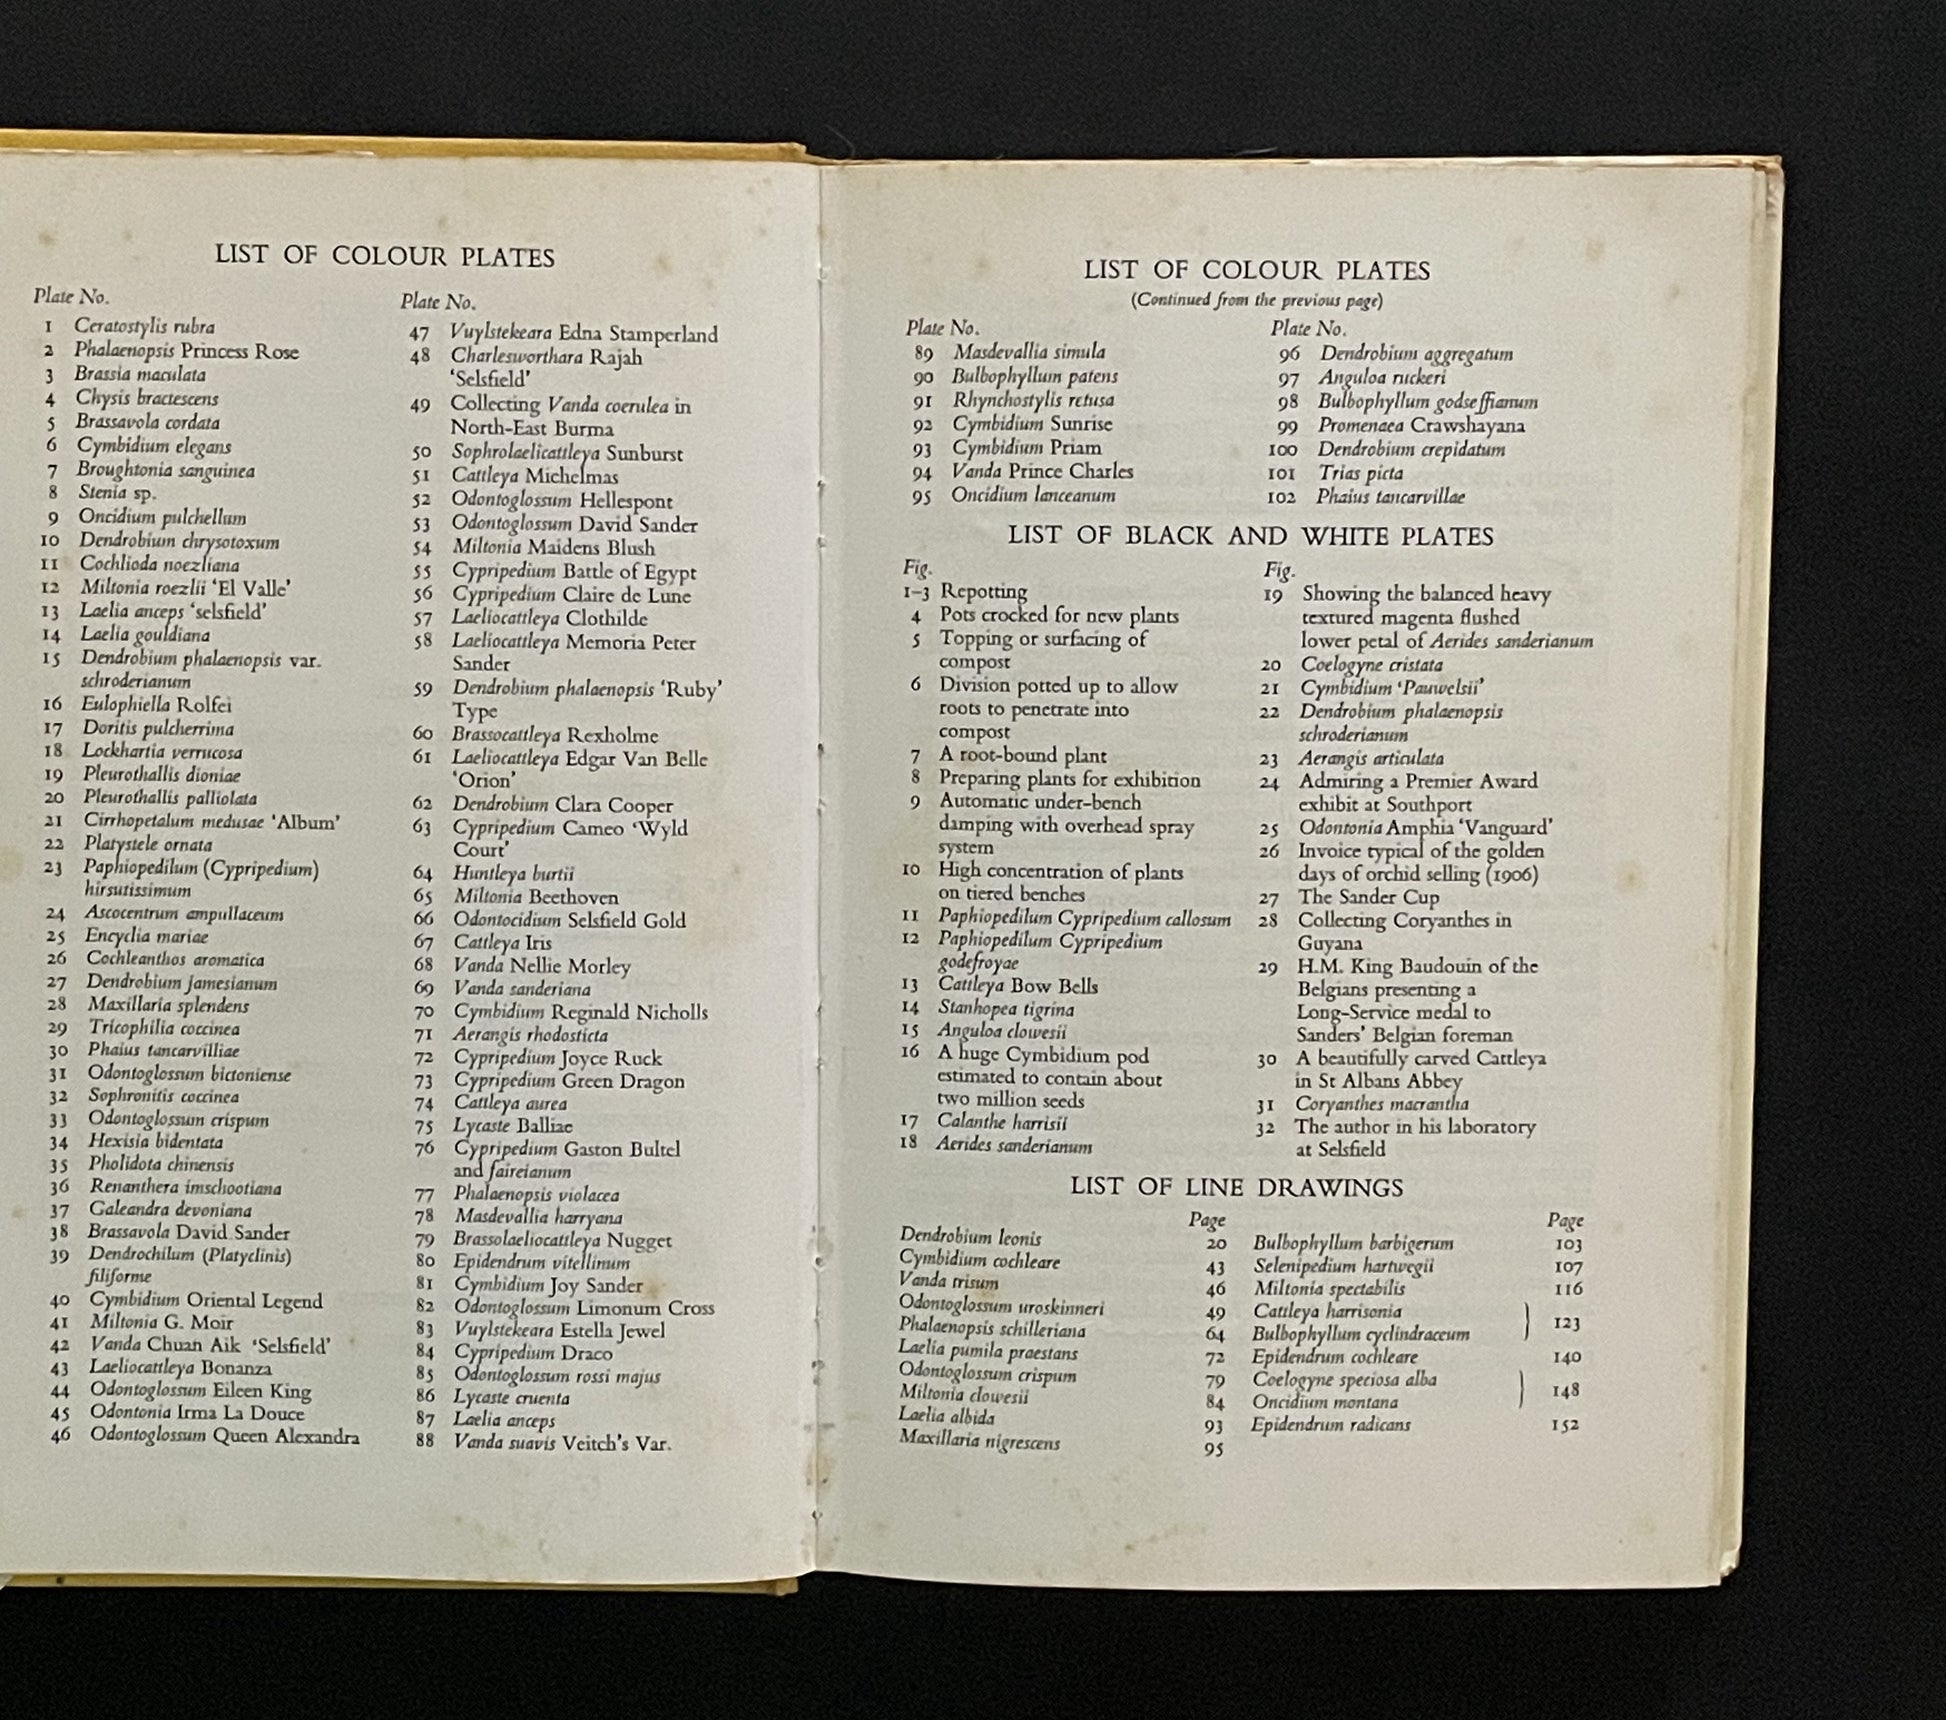 LIST OF COLOUR PLATES
Plate No.
1 Ceratostylis rubra
2 Phalaenopsis Princess Rose
3 Brassia maculata
4 Chysis bractescens
5 Brassavola cordata
6 Cymbidium elegans
7 Broughtonia sanguinea
8 Stenia sp.
9 Oncidium pulchellum
10 Dendrobium chrysotoxum
11 Cochlioda noezliana
12 Miltonia roezlii ‘El Valle’
13 Laelia anceps ‘selsfield’
14 Laelia gouldiana
15 Dendrobium phalaenopsis var.
schroderianum
16 Eulophiella Rolfei
17 Doritis pulcherrima
18 Lockhartia verrucosa
19 Pleurothallis dioniae
20 Pleurothallis palliolata
21 Cirrhopetalum medusae ‘Album’
22 Platystele ornata
23 Paphiopedilum (Cypripedium)
hirsutissimum
24 Ascocentrum ampullaceum
25 Encyclia mariae
26 Cochleanthos aromatica
27 Dendrobium jamesianum
28 Maxillaria splendens
29 Tricophilia coccinea
30 Phaius tancarvilliae
31 Odontoglossum bictoniense
32 Sophronitis coccinea
33 Odontoglossum crispum
34 Hexisia bidentata
35 Pholidota chinensis
36 Renanthera imschootiana
37 Galeandra devoniana
38 Brassavola David Sander
39 Dendrochilum (Platyclinis)
filiforme
40 Cymbidium Oriental Legend
41 Miltonia G. Moir
42 Vanda Chuan Aik ‘Selsfield’
43 Laeliocattleya Bonanza
44 Odontoglossum Eileen King
45 Odontonia Irma La Douce
46 Odontoglossum Queen Alexandra
Plate No.
47 Vuylstekeara Edna Stamperland
48 Charlesworthara Rajah
‘Selsfield’
49 Collecting Vanda coerulea in
North-East Burma
50 Sophrolaelicattleya Sunburst
51 Cattleya Michelmas
52 Odontoglossum Hellespont
53 Odontoglossum David Sander
54 Miltonia Maidens Blush
55 Cypripedium Battle of Egypt
56 Cypripedium Claire de Lune
57 Laeliocattleya Clothilde
58 Laeliocattleya Memoria Peter
Sander
59 Dendrobium phalaenopsis ‘Ruby’
Type
60 Brassocattleya Rexholme
61 Laeliocattleya Edgar Van Belle
‘Orion’
62 Dendrobium Clara Cooper
63 Cypripedium Cameo ‘Wyld
Court’
64 Huntleya burtii
65 Miltonia Beethoven
66 Odontocidium Selsfield Gold
67 Cattleya Iris
68 Vanda Nellie Morley
69 Vanda sanderiana
70 Cymbidium Reginald Nicholls
71 Aerangis rhodosticta
72 Cypripedium Joyce Ruck
73 Cypripedium Green Dragon
74 Cattleya aurea
75 Lycaste Balliae
76 Cypripedium Gaston Bultel
and faireianum
77 Phalaenopsis violacea
78 Masdevallia harryana
79 Brassolaeliocattleya Nugget
80 Epidendrum vitellinum
81 Cymbidium Joy Sander
82 Odontoglossum Limonum Cross
83 Vuylstekeara Estella Jewel
84 Cypripedium Draco
85 Odontoglossum rossi majus
86 Lycaste cruenta
87 Laelia anceps
88 Vanda suavis Veitch’s Var.
LIST OF COLOUR PLATES
(Continued from the previous page)
Plate No.
89 Masdevallia simula
90 Bulbophyllum patens
91 Rhynchostylis retusa
92 Cymbidium Sunrise
93 Cymbidium Priam
94 Vanda Prince Charles
95 Oncidium lanceanum
Plate No.
96 Dendrobium aggregatum
97 Anguloa ruckeri
98 Bulbophyllum godseffianum
99 Promenaea Crawshayana
100 Dendrobium crepidatum
101 Trias picta
102 Phaius tancarvillae
LIST OF BLACK AND WHITE PLATES
Fig.
1–3 Repotting
4 Pots crocked for new plants
5 Topping or surfacing of
compost
6 Division potted up to allow
roots to penetrate into
compost
7 A root-bound plant
8 Preparing plants for exhibition
9 Automatic under-bench
damping with overhead spray
system
10 High concentration of plants
on tiered benches
11 Paphiopedilum Cypripedium callosum
12 Paphiopedilum Cypripedium
godefroyae
13 Cattleya Bow Bells
14 Stanhopea tigrina
15 Anguloa clowesii
16 A huge Cymbidium pod
estimated to contain about
two million seeds
17 Calanthe harrisii
18 Aerides sanderianum
Fig.
19 Showing the balanced heavy
textured magenta flushed
lower petal of Aerides sanderianum
20 Coelogyne cristata
21 Cymbidium ‘Pauwelsii’
22 Dendrobium phalaenopsis
schroderianum
23 Aerangis articulata
24 Admiring a Premier Award
exhibit at Southport
25 Odontonia Amphia ‘Vanguard’
26 Invoice typical of the golden
days of orchid selling (1906)
27 The Sander Cup
28 Collecting Coryanthes in
Guyana
29 H.M. King Baudouin of the
Belgians presenting a
Long-Service medal to
Sanders’ Belgian foreman
30 A beautifully carved Cattleya
in St Albans Abbey
31 Coryanthes macrantha
32 The author in his laboratory
at Selsfield
LIST OF LINE DRAWINGS
Page
Dendrobium leonis 20
Cymbidium cochleare 43
Vanda trisum 46
Odontoglossum uroskinneri 49
Phalaenopsis schilleriana 64
Laelia pumila praestans 72
Odontoglossum crispum 79
Miltonia clowesii 84
Laelia albida 93
Maxillaria nigrescens 95
Page
Bulbophyllum barbigerum 103
Selenipedium hartwegii 107
Miltonia spectabilis 116
Cattleya harrisonia
Bulbophyllum cyclindraceum } 123
Epidendrum cochleare 140
Coelogyne speciosa alba
Oncidium montana } 148
Epidendrum radicans 152